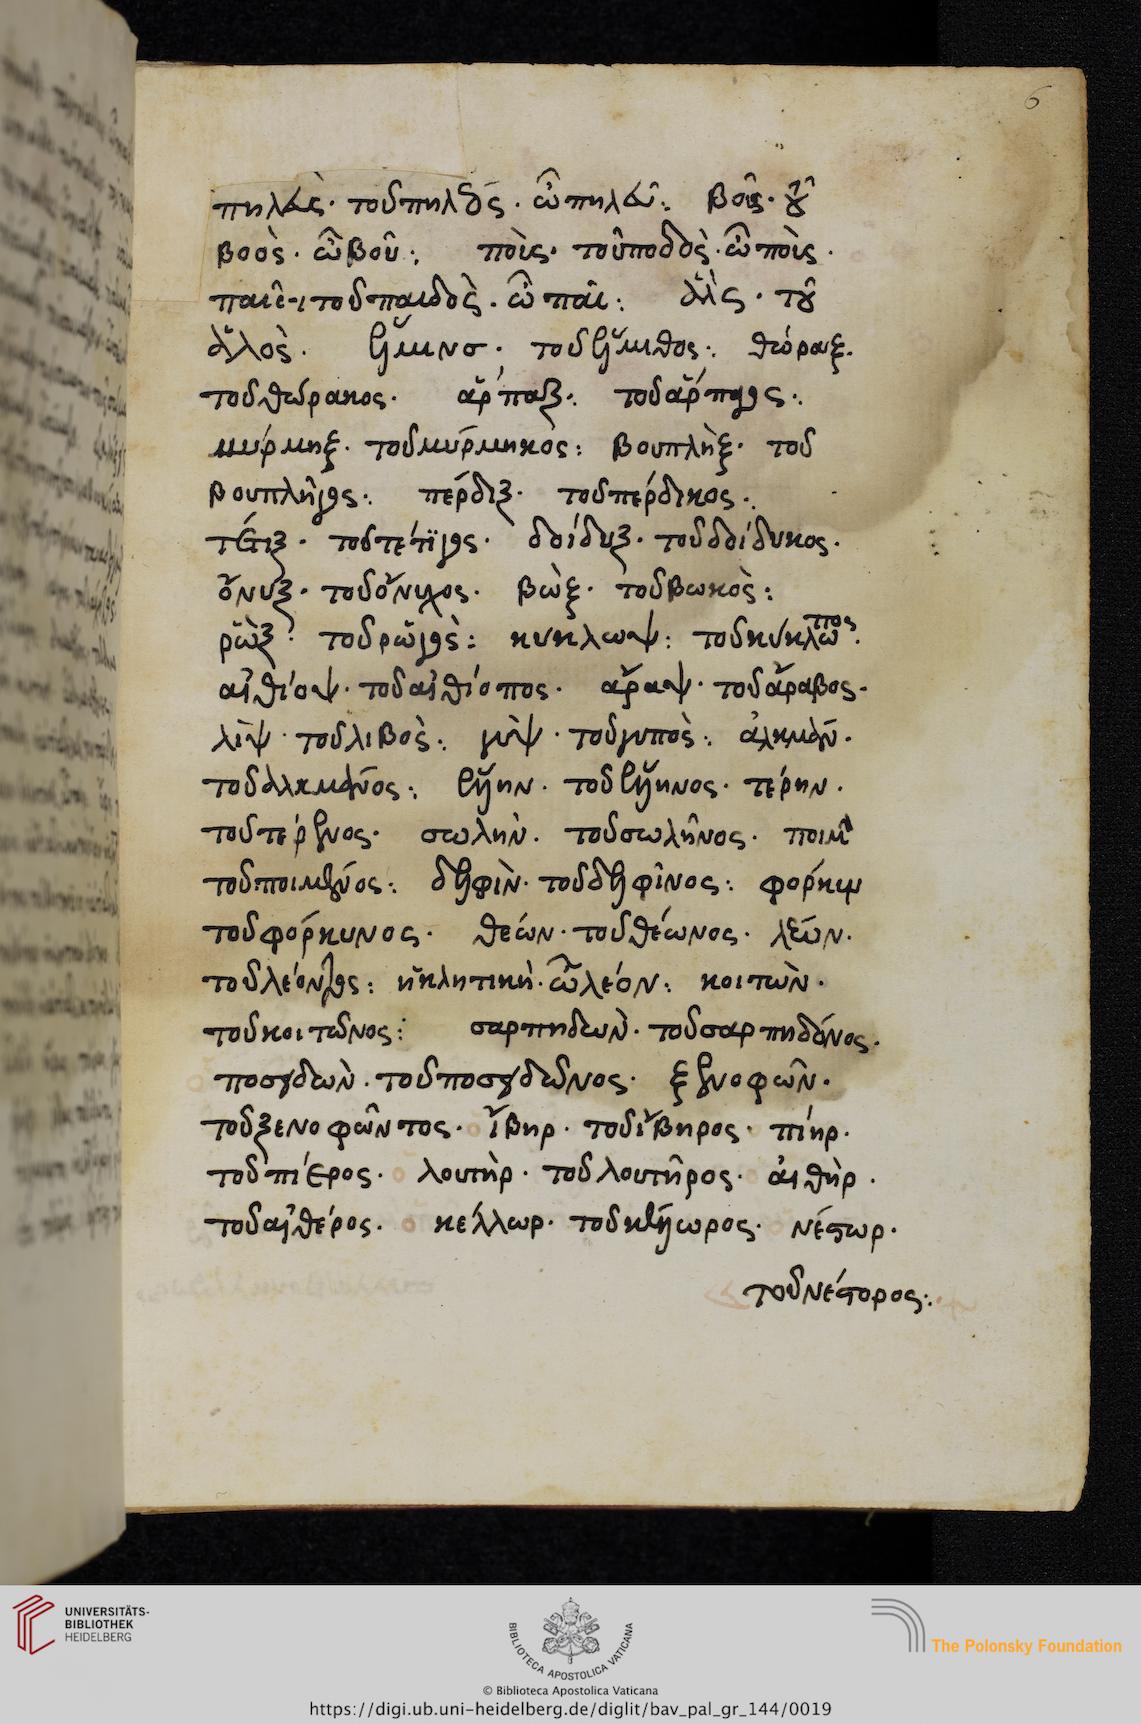 6
πηλεὺς· τοῦ πηλέος· ὦ πηλεῦ: βοῦς· τοῦ
βοὸς· ὦ βοῦ: ποὺς· τοῦ ποδὸς· ὦ ποὺς·
παῖς· τοῦ παιδὸς· ὦ παῖ: ἅλς· τοῦ
ἁλὸς· ἕλμινς· τοῦ ἕλμιθος: θώραξ·
τοῦ θώρακος· ἅρπαξ: τοῦ ἅρπαγος:
μύρμηξ· τοῦ μύρμηκος: βουπλὴξ· τοῦ
βουπλῆγος: πέρδιξ· τοῦ πέρδικος:
τέτιξ· τοῦ τέτιγος· δοίδυξ· τοῦ δοίδυκος·
ὄνυξ· τοῦ ὄνυχος· βὼξ· τοῦ βωκὸς:
ῥὼξ· τοῦ ῥωγὸς: κυκλωψ: τοῦ κύκλωπος·
αἰθίοψ· τοῦ αἰθίοπος· ἄραψ· τοῦ ἄραβος·
λὶψ· τοῦ λιβὸς: γὺψ· τοῦ γυπὸς: ἀλκμάν·
τοῦ ἀλκμάνος: ἕλλην· τοῦ ἕλληνος· τέρην·
τοῦ τέρενος· σωλὴν· τοῦ σωλῆνος· ποιμὴν
τοῦ ποιμένος: δελφὶν· τοῦ δελφῖνος: φόρκυν
τοῦ φόρκυνος· θέων· τοῦ θέωνος· λέων·
τοῦ λέοντος: ἡ κλητικὴ· ὦ λέον: κοιτὼν·
τοῦ κοιτῶνος: σαρπηδὼν· τοῦ σαρπηδόνος·
ποσειδὼν· τοῦ ποσειδῶνος· ξενοφῶν·
τοῦ ξενοφῶντος· ἴβηρ· τοῦ ἴβηρος· πίηρ·
τοῦ πίερος· λουτὴρ· τοῦ λουτῆρος· αἰθὴρ·
τοῦ αἰθέρος· κέλλωρ· τοῦ κέλλωρος· νέστωρ·
τοῦ νέστορος:
UNIVERSITÄTS-
BIBLIOTHEK
HEIDELBERG
BIBLIOTECA APOSTOLICA VATICANA
The Polonsky Foundation
© Biblioteca Apostolica Vaticana
https://digi.ub.uni-heidelberg.de/diglit/bav_pal_gr_144/0019